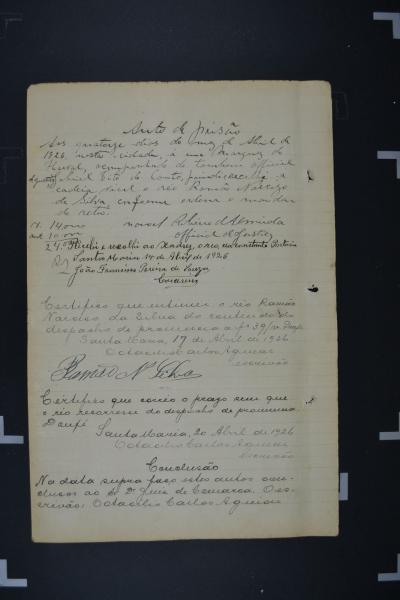 Auto de prisão
Aos quatorze dias do mez de Abril de
1926, nesta cidade, á rua Marquez do
Herval, acompanhado do tambem official
Couto, á
cadeia civil o réo Ramão Narciso
da Silva, conforme ordena o mandado
de retro.
Ribeiro d'Almeida
official de Justiça
Recebi e recolhi ao Xadrez, o réo, constante Portaria
Santa Maria 14 de Abril de 1926
João Francisco Pereira de Souza
Carcereiro
Certifico que intimei o réo Ramão
Narciso da Silva do conteúdo do
despacho de pronuncia a fs 39/v. Doufé
Santa Maria, 17 de Abril de 1926
Octacilio Carlos Aguiar
escrivão
Ramão N. Silva
Certifico que correo o prazo sem que
o réo recorresse do despacho de pronuncia
Doufé
Santa Maria, 20 Abril de 1926
Octacilio Carlos Aguiar
escrivão
Conclusão
Na data supra faço estes autos con-
clusos ao Sr Dr Juiz da Comarca. O es-
crivão: Octacilio Carlos Aguiar